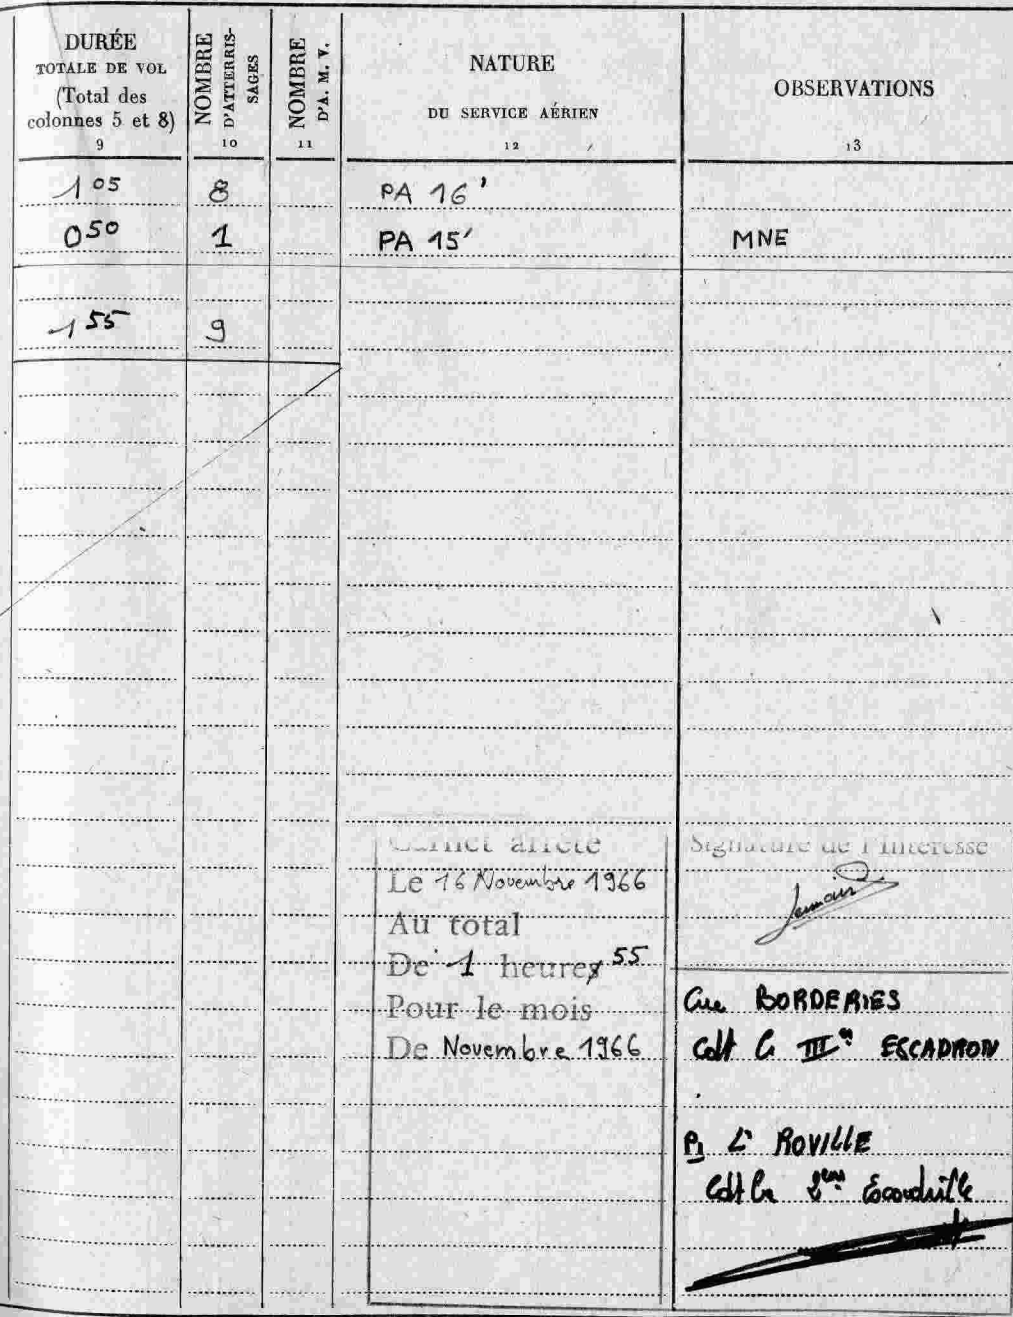 DURÉE
TOTALE DE VOL
(Total des
colonnes 5 et 8)
9
NOMBRE
D'ATTERRIS-
SAGES
10
NOMBRE
D'A. M. V.
11
NATURE
DU SERVICE AÉRIEN
12
OBSERVATIONS
13
1 05 8 PA 16'
0 50 1 PA 15' MNE
1 55 9
Carnet arrêté
Le 16 Novembre 1966
Au total
De 1 heures 55
Pour le mois
De Novembre 1966
Signature de l'intéressé
BORDERIES
Cdt III ESCADRON
ROVILLE
Cdt Escadrille